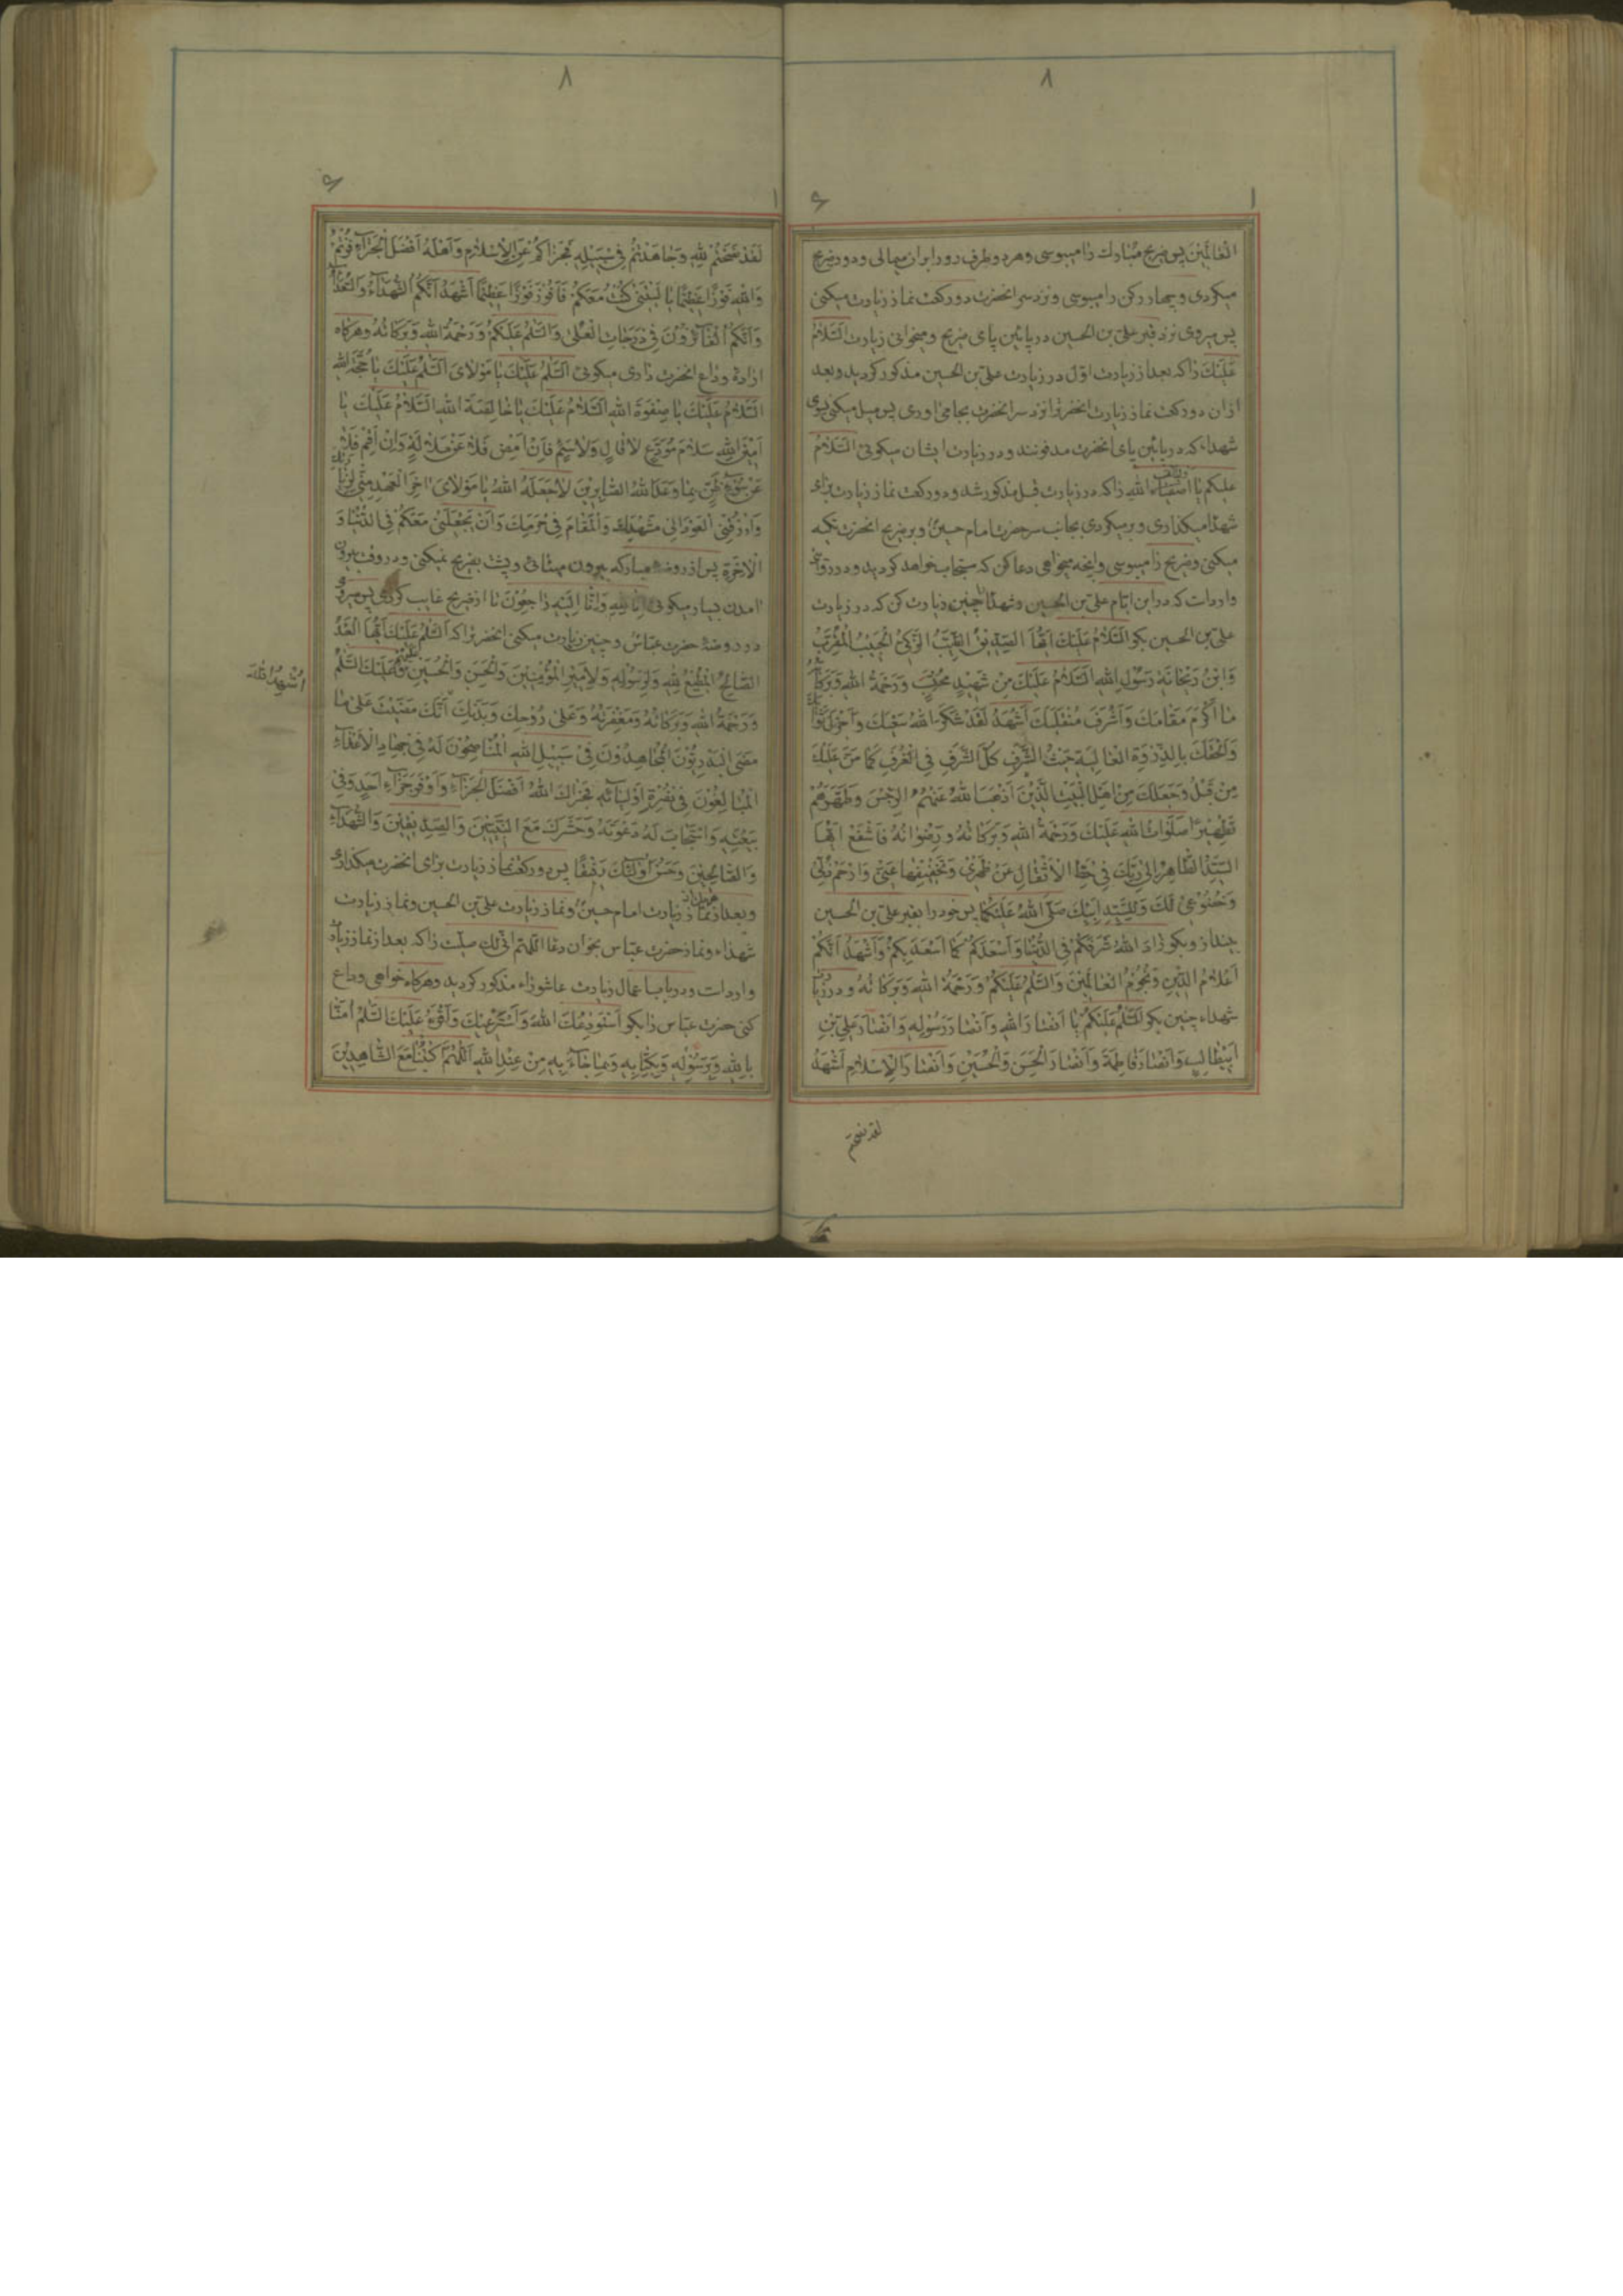 ٨
١ ٩
العٰالَمينَ پس ضريح مبٰارك را ميبوسى وهر دو طرف رو را بران ميمالى ودور ضريح
ميگردى وچهار ركن را ميبوسى ونزد سر انحضرت دو ركعت نماز زيارت ميكنى
پس ميروى نزد قبر على بن الحسين در پائين پاى ضريح وميخوانى زيارت اَلسَّلامُ
عَلَيْكَ را كه بعد از زيارت اول در زيارت على بن الحسين مذكور گرديد وبعد
از ان دو ركعت نماز زيارت انحضرترا نزد سر انحضرت بجا مى اورى پس ميل ميكنى بسوى
شهداء كه در پائين پاى انحضرت مدفونند ودر زيارت ايشان ميگوئى اَلسَّلامُ
عليكم يا اصفياء الله را كه در زيارت قبل مذكور شد ودو ركعت نماز زيارت براى
شهدا ميگذارى وبر ميگردى بجانب سر حضرت امام حسين وبر ضريح انحضرت تكيه
ميكنى وضريح را ميبوسى وانچه ميخواهى دعا كن كه مستجاب خواهد گرديد ودر روايتى
وارداست كه در اين ايام على بن الحسين وشهدا را چنين زيارت كن كه در زيارت
على بن الحسين بگو اَلسَّلامُ عَلَيْكَ اَيُّهَا الصِّدّيقُ الطَّيِّبُ الزَّكِىُّ الْحَبيبُ الْمُقَرَّبُ
وَابْنُ رَيْحٰانَةِ رَسُولِ اللهِ اَلسَّلامُ عَلَيْكَ مِنْ شَهيدٍ مُحْتَسِبٍ وَرَحْمَةُ اللهِ وَبَرَكٰاتُهُ
مٰا اَكْرَمَ مَقٰامَكَ وَاَشْرَفَ مُنْقَلَبَكَ اَشْهَدُ لَقَدْ شَكَرَ اللهُ سَعْيَكَ وَاَجْزَلَ ثَوٰابَكَ
وَاَلْحَقَكَ بِالذِّرْوَةِ الْعٰالِيَةِ حَيْثُ الشَّرَفُ كُلُّ الشَّرَفِ فِى الْغُرَفِ كَمٰا مَنَّ عَلَيْكَ
مِنْ قَبْلُ وَجَعَلَكَ مِنْ اَهْلِ الْبَيْتِ الَّذينَ اَذْهَبَ اللهُ عَنْهُمُ الرِّجْسَ وَطَهَّرَهُمْ
تَطْهيرًا صَلَوٰاتُ اللهِ عَلَيْكَ وَرَحْمَةُ اللهِ وَبَرَكٰاتُهُ وَرِضْوٰانُهُ فَاشْفَعْ اَيُّهَا
السَّيِّدُ الطّٰاهِرُ اِلىٰ رَبِّكَ فى حَطِّ الْاَثْقٰالِ عَنْ ظَهْرى وَتَخْفيفِهٰا عَنّى وَارْحَمْ ذُلّى
وَخُضُوعى لَكَ وَلِلسَّيِّدِ اَبيكَ صَلَّى اللهُ عَلَيْكُمٰا پس خود را بقبر على بن الحسين
بينداز وبگو زٰادَ اللهُ شَرَفَكُمْ فِى الدُّنْيٰا وَاَسْعَدَكُمْ كَمٰا اَسْعَدَ بِكُمْ وَاَشْهَدُ اَنَّكُمْ
اَعْلٰامُ الدّينِ وَنُجُومُ الْعٰالَمينَ وَالسَّلٰمُ عَلَيْكُمْ وَرَحْمَةُ اللهِ وَبَرَكٰاتُهُ ودر زيارت
شهداء چنين بگو اَلسَّلٰمُ عَلَيْكُمْ يٰا اَنْصٰارَ اللهِ وَاَنْصٰارَ رَسُولِهِ وَاَنْصٰارَ عَلِىِّ بْنِ
اَبيطٰالِبٍ وَاَنْصٰارَ فٰاطِمَةَ وَاَنْصٰارَ الْحَسَنِ وَالْحُسَيْنِ وَاَنْصٰارَ الْاِسْلٰامِ اَشْهَدُ
لقد نصحتم
٨
١ ٩
لَقَدْ نَصَحْتُمْ لِلّٰهِ وَجٰاهَدْتُمْ فى سَبيلِهِ فَجَزٰاكُمُ عَنِ الْاِسْلٰامِ وَاَهْلِهِ اَفْضَلَ الْجَزٰاءِ فُزْتُمْ
وَاللهِ فَوْزًا عَظيمًا يٰا لَيْتَنى كُنْتُ مَعَكُمْ فَاَفُوزَ فَوْزًا عَظيمًا اَشْهَدُ اَنَّكُمُ الشُّهَدٰاءُ وَالسُّعَدٰاءُ
وَاَنَّكُمُ الْفٰائِزُونَ فى دَرَجٰاتِ الْعُلىٰ وَالسَّلٰمُ عَلَيْكُمْ وَرَحْمَةُ اللهِ وَبَرَكٰاتُهُ وهرگاه
ارادهٔ وداع انحضرت دارى ميگوئى اَلسَّلٰمُ عَلَيْكَ يٰا مَوْلٰاىَ اَلسَّلٰمُ عَلَيْكَ يٰا حُجَّةَ اللهِ
اَلسَّلٰامُ عَلَيْكَ يٰا صِفْوَةَ اللهِ اَلسَّلٰامُ عَلَيْكَ يٰا خٰالِصَةَ اللهِ اَلسَّلٰامُ عَلَيْكَ يٰا
اَمينَ اللهِ سَلٰامَ مُوَدِّعٍ لٰا قٰالٍ وَلٰا سَئِمٍ فَاِنْ اَمْضِ فَلٰا عَنْ مَلٰالَةٍ وَاِنْ اُقِمْ فَلٰا
عَنْ سُوءِ ظَنٍّ بِمٰا وَعَدَ اللهُ الصّٰابِرينَ لٰا جَعَلَهُ اللهُ يٰا مَوْلٰاىَ اٰخِرَ الْعَهْدِ مِنّى لِزِيٰارَتِكَ
وَارْزُقْنِى الْعَوْدَ اِلىٰ مَشْهَدِكَ وَالْمَقٰامَ فى حَرَمِكَ وَاَنْ يَجْعَلَنى مَعَكُمْ فِى الدُّنْيٰا وَ
الْاٰخِرَةِ پس از روضهٔ مباركه بيرون ميائى وپشت بضريح نميكنى ودر وقت بيرون
امدن بسيار ميگوئى اِنّٰا لِلّٰهِ وَاِنّٰا اِلَيْهِ رٰاجِعُونَ تا از ضريح غايب گردى پس ميروى
در روضهٔ حضرت عبّاس وچنين زيارت ميكنى انحضرترا كه اَلسَّلٰمُ عَلَيْكَ اَيُّهَا الْعَبْدُ
الصّٰالِحُ الْمُطيعُ لِلّٰهِ وَلِرَسُولِهِ وَلِاَميرِ الْمُؤْمِنينَ وَالْحَسَنِ وَالْحُسَيْنِ عَلَيْكَ السَّلٰمُ
اُشْهِدُ اللهَ
وَرَحْمَةُ اللهِ وَبَرَكٰاتُهُ وَمَغْفِرَتُهُ وَعَلىٰ رُوحِكَ وَبَدَنِكَ اَنَّكَ مَضَيْتَ عَلىٰ مٰا
مَضىٰ الْبَدْرِيُّونَ الْمُجٰاهِدُونَ فى سَبيلِ اللهِ الْمُنٰاصِحُونَ لَهُ فى جِهٰادِ الْاَعْدٰاءِ
الْمُبٰالِغُونَ فى نُصْرَةِ اَوْلِيٰائِهِ فَجَزٰاكَ اللهُ اَفْضَلَ الْجَزٰاءِ وَاَوْفَرَ جَزٰاءِ اَحَدٍ وَفىٰ
بِبَيْعَتِهِ وَاسْتَجٰابَ لَهُ دَعْوَتَهُ وَحَشَرَكَ مَعَ النَّبِيّينَ وَالصِّدّيقينَ وَالشُّهَدٰاءِ
وَالصّٰالِحينَ وَحَسُنَ اُولٰئِكَ رَفيقًا پس دو ركعت نماز زيارت براى انحضرت ميگذارى
وبعد از نماز زيارت امام حسين ونماز زيارت على بن الحسين ونماز زيارت
شهداء ونماز حضرت عبّاس بخوان دعا اللّهمّ انّى لك صلّيت را كه بعد از نماز زيارت
وارداست ودر باب اعمال زيارت عاشوراء مذكور گرديد وهرگاه خواهى وداع
كنى حضرت عبّاس را بگو اَسْتَوْدِعُكَ اللهَ وَاَسْتَرْعيكَ وَاَقْرَءُ عَلَيْكَ السَّلٰمَ اٰمَنّٰا
بِاللهِ وَبِرَسُولِهِ وَبِكِتٰابِهِ وَبِمٰا جٰاءَ بِهِ مِنْ عِنْدِ اللهِ اَللّٰهُمَّ اكْتُبْنٰا مَعَ الشّٰاهِدينَ